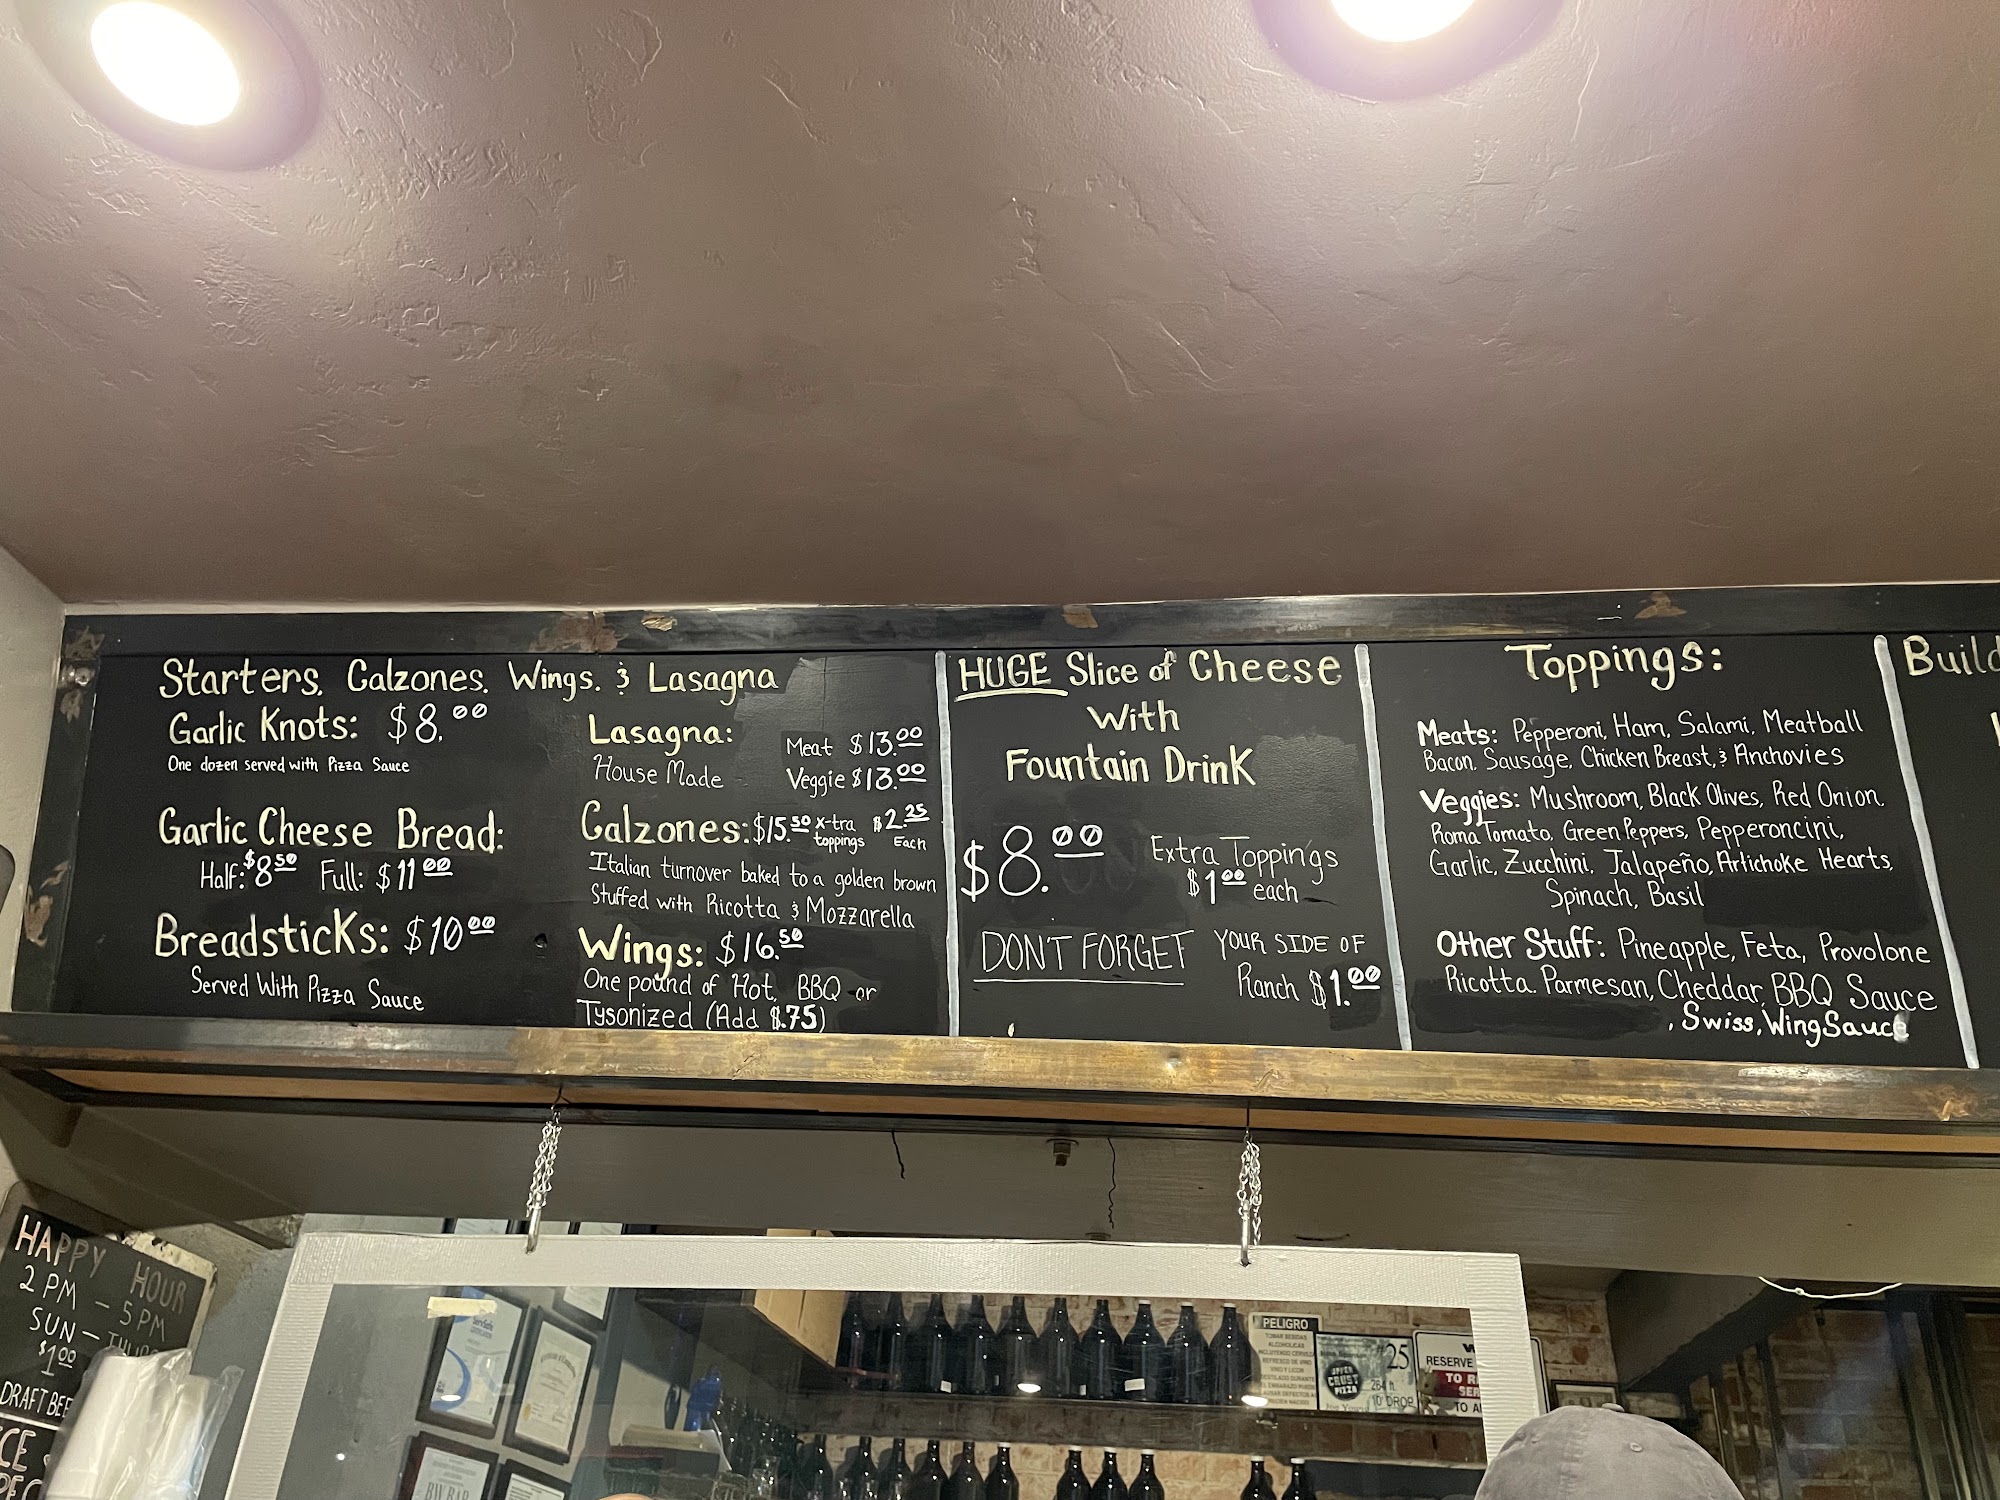 Starters, Calzones, Wings, & Lasagna
Garlic Knots: $8.00
One dozen served with Pizza Sauce
Garlic Cheese Bread:
Half: $8.50 Full: $11.00
Breadsticks: $10.00
Served With Pizza Sauce
Lasagna: Meat $13.00
House Made Veggie $13.00
Calzones: $15.50 x-tra toppings $2.25 Each
Italian turnover baked to a golden brown
Stuffed with Ricotta & Mozzarella
Wings: $16.50
One pound of Hot, BBQ or
Tysonized (Add $.75)
HUGE Slice of Cheese
With
Fountain Drink
$8.00 Extra Toppings
$1.00 each
DON'T FORGET YOUR SIDE OF
Ranch $1.00
Toppings:
Meats: Pepperoni, Ham, Salami, Meatball
Bacon, Sausage, Chicken Breast, & Anchovies
Veggies: Mushroom, Black Olives, Red Onion,
Roma Tomato, Green Peppers, Pepperoncini,
Garlic, Zucchini, Jalapeño, Artichoke Hearts,
Spinach, Basil
Other Stuff: Pineapple, Feta, Provolone
Ricotta, Parmesan, Cheddar, BBQ Sauce
, Swiss, Wing Sauce
Build
HAPPY HOUR
2 PM - 5 PM
SUN - THU
$1.00
DRAFT BEE
PELIGRO
TOMAR BEBIDAS
ALCOHOLICAS
UPPER
CRUST
PIZZA
#25
264 ft.
10' DROP
RESERVE
TO R
SER
TO A